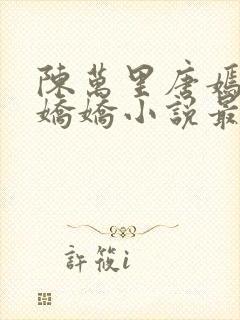 陳萬里唐嫣
嬌嬌小說最
許筱i